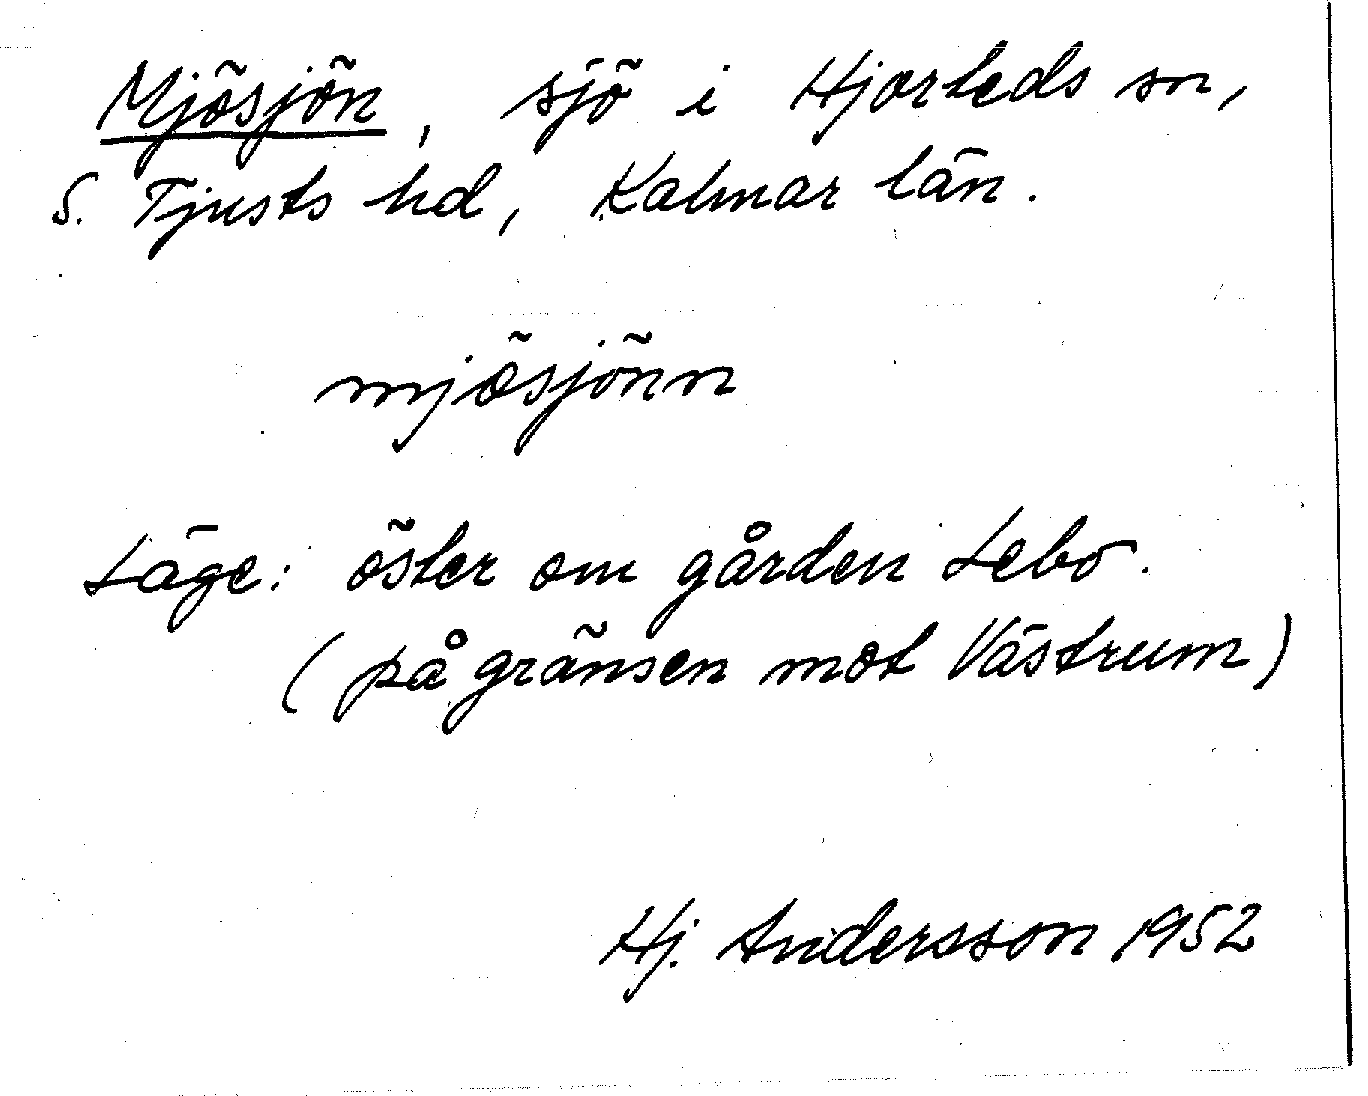 Mjösjön, sjö i Hjorteds sn,
S. Tjusts hd, Kalmar län.
mjösjönn
Läge: öster om gården Lebo.
(på gränsen mot Västrum)
Hj. Andersson 1952